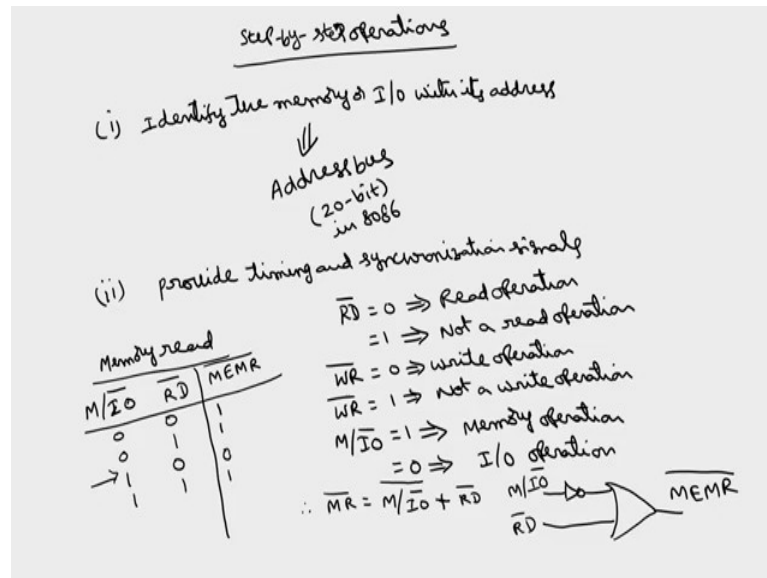 Step-by-step operations
(i) Identify the memory or I/O with its address
⇓
Address bus
(20-bit)
in 8086
(ii) provide timing and synchronization signals
R̅D̅ = 0 ⇒ Read operation
= 1 ⇒ Not a read operation
W̅R̅ = 0 ⇒ write operation
W̅R̅ = 1 ⇒ Not a write operation
M/I̅O̅ = 1 ⇒ Memory operation
= 0 ⇒ I/O operation
Memory read
M/I̅O̅ R̅D̅ M̅E̅M̅R̅
0 0 1
0 1 1
→ 1 0 0
1 1 1
∴ M̅R̅ = M̅/̅I̅O̅ + R̅D̅
M/I̅O̅
R̅D̅
M̅E̅M̅R̅